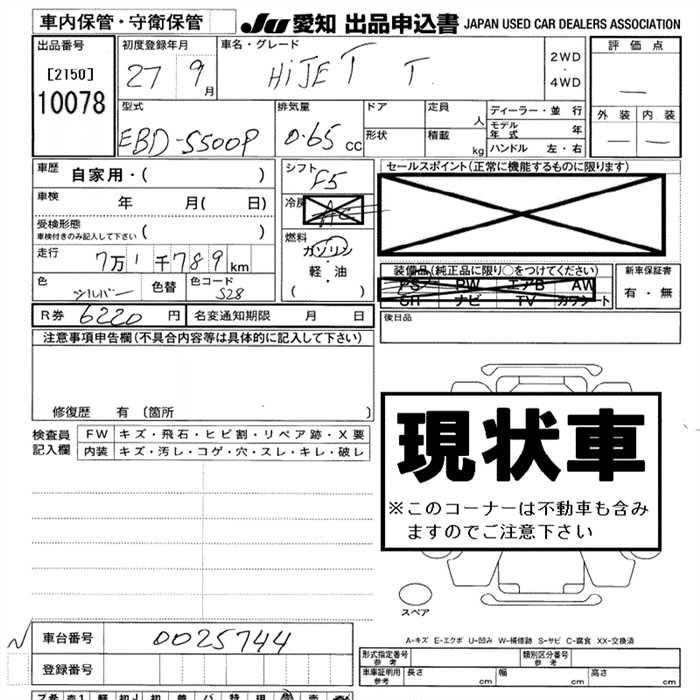 車内保管・守衛保管 JU 愛知 出品申込書 JAPAN USED CAR DEALERS ASSOCIATION
出品番号 初度登録年月 車名・グレード 2WD・4WD 評価点
[2150] 27 9月 HiJET T. —
10078 型式 排気量 ドア 定員 人 ディーラー・並行 外装 内装
EBD-S500P 0.65 cc 形状 積載 kg モデル年式 年 — —
ハンドル 左・右
車歴 自家用・( ) シフト F5 セールスポイント(正常に機能するものに限ります)
車検 年 月( 日) 冷房 AC
受検形態
車検付きのみ記入して下さい ( ) 燃料 ガソリン・軽・油 ( )
走行 7万1千789km 装備品(純正品に限り○をつけてください) 新車保証書
色 シルバー 色替 色コード S28 PS PW エアB AW 有・無
SR ナビ TV カワシート
R券 6220円 名変通知期限 月 日 後日品
注意事項申告欄(不具合内容等は具体的に記入して下さい)
修復歴 有〔箇所 〕
現状車
※このコーナーは不動車も含み
ますのでご注意下さい
検査員記入欄 FW キズ・飛石・ヒビ割・リペア跡・X要
内装 キズ・汚レ・コゲ・穴・スレ・キレ・破レ
スペア
A-キズ E-エクボ U-凹み W-補修跡 S-サビ C-腐食 XX-交換済
車台番号 0025744 形式指定番号 参考 類別区分番号 参考
登録番号 車庫証明用 参考 長さ cm 幅 cm 高さ cm